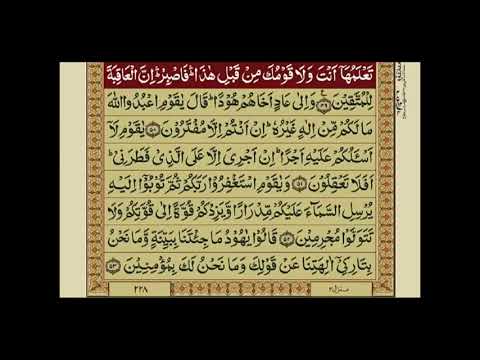 تَعْلَمُهَاۤ اَنْتَ وَلَا قَوْمُكَ مِنْ قَبْلِ هٰذَا ۛؕ فَاصْبِرْ ۛؕ اِنَّ الْعَاقِبَةَ
لِلْمُتَّقِيْنَ ﴿۴۹﴾ وَاِلٰى عَادٍ اَخَاهُمْ هُوْدًا ؕ قَالَ يٰقَوْمِ اعْبُدُوا اللّٰهَ
مَا لَكُمْ مِّنْ اِلٰهٍ غَيْرُهٗ ؕ اِنْ اَنْتُمْ اِلَّا مُفْتَرُوْنَ ﴿۵۰﴾ يٰقَوْمِ لَاۤ
اَسْـَٔلُكُمْ عَلَيْهِ اَجْرًا ؕ اِنْ اَجْرِيَ اِلَّا عَلَى الَّذِيْ فَطَرَنِيْ ؕ
اَفَلَا تَعْقِلُوْنَ ﴿۵۱﴾ وَيٰقَوْمِ اسْتَغْفِرُوْا رَبَّكُمْ ثُمَّ تُوْبُوْۤا اِلَيْهِ
يُرْسِلِ السَّمَآءَ عَلَيْكُمْ مِّدْرَارًا وَّيَزِدْكُمْ قُوَّةً اِلٰى قُوَّتِكُمْ وَلَا
تَتَوَلَّوْا مُجْرِمِيْنَ ﴿۵۲﴾ قَالُوْا يٰهُوْدُ مَا جِئْتَنَا بِبَيِّنَةٍ وَّمَا نَحْنُ
بِتَارِكِيْۤ اٰلِهَتِنَا عَنْ قَوْلِكَ وَمَا نَحْنُ لَكَ بِمُؤْمِنِيْنَ ﴿۵۳﴾
۲۲۸
منزل ۳